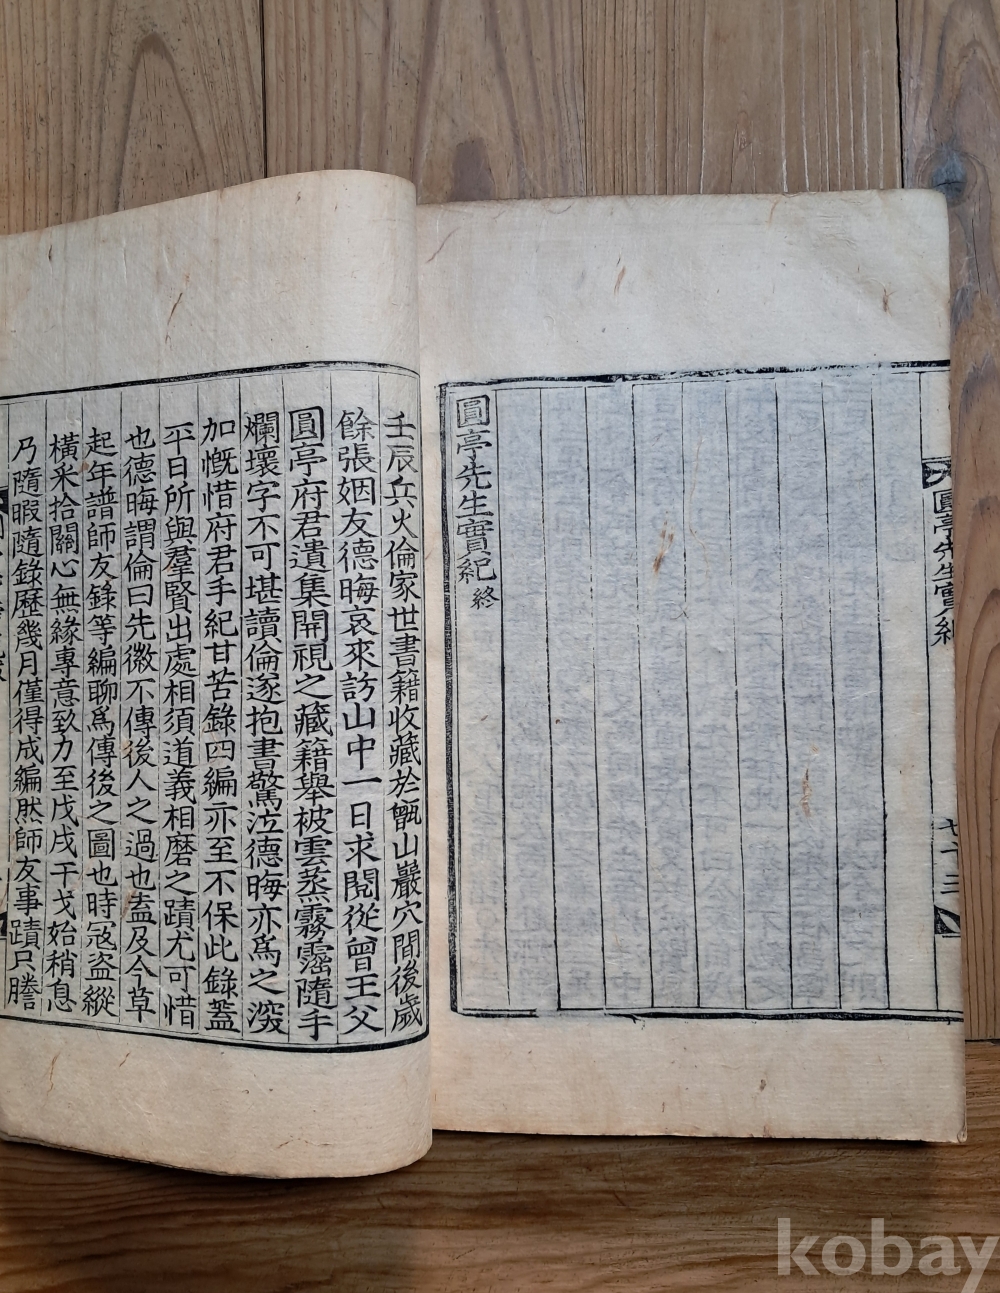 圓亭先生實紀
七十三
圓亭先生實紀 終
壬辰兵火倫家世書籍收藏於甑山巖穴間後歲
餘張姻友德晦哀來訪山中一日求閱從曾王父
圓亭府君遺集開視之藏籍舉被雲蒸霧霤隨手
爛壞字不可堪讀倫遂抱書驚泣德晦亦爲之深
加慨惜府君手紀甘苦錄四編亦至不保此錄蓋
平日所與羣賢出處相須道義相磨之蹟尤可惜
也德晦謂倫曰先徽不傳後人之過也盍及今草
起年譜師友錄等編聊爲傳後之圖也時冦盜縱
橫采拾關心無緣專意致力至戊戌干戈始稍息
乃隨暇隨錄歷幾月僅得成編然師友事蹟只謄
kobay